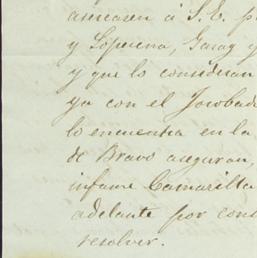 asercasen á S. E. p
y Loperena, Garay y
y que lo consideran
ya con el
lo encuentra en la
de Bravo aseguran,
infame Camarilla
adelante por cons
resolver.